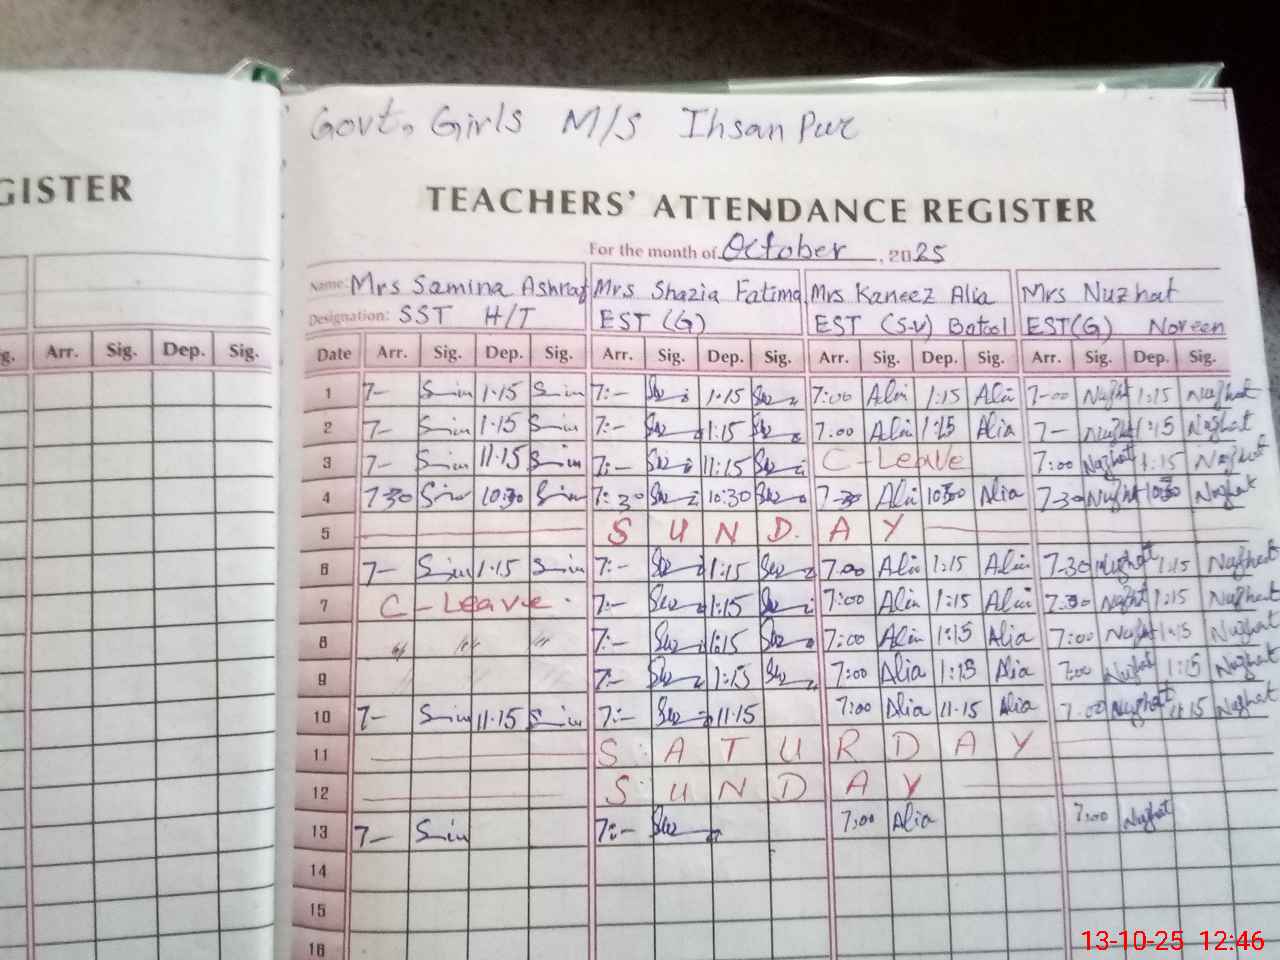 Govt. Girls M/S Ihsan Pur
GISTER
TEACHERS' ATTENDANCE REGISTER
For the month of October, 2025
Name: Mrs Samina Ashraf Mrs Shazia Fatima Mrs Kaneez Alia Mrs Nuzhat
Designation: SST H/T EST (G) EST (S-V) Batool EST(G) Noreen
g. Arr. Sig. Dep. Sig. Date Arr. Sig. Dep. Sig. Arr. Sig. Dep. Sig. Arr. Sig. Dep. Sig. Arr. Sig. Dep. Sig.
1 7- 1·15 7:- 1·15 7:00 Alia 1:15 Alia 7-00 Nuzhat 1:15 Nuzhat
2 7- 1·15 7:- 1:15 7:00 Alia 1:15 Alia 7- Nuzhat 1:15 Nuzhat
3 7- 11·15 7:- 11:15 C-Leave 7:00 Nuzhat 1:15 Nuzhat
4 7-30 10:30 7:30 10:30 7-30 Alia 10:30 Alia 7-30 Nuzhat 10:30 Nuzhat
5 S U N D A Y
6 7- 1·15 7:- 1:15 7:00 Alia 1:15 Alia 7-30 Nuzhat 1:15 Nuzhat
7 C-Leave 7:- 1:15 7:00 Alia 1:15 Alia 7:30 Nuzhat 1:15 Nuzhat
8 〃 〃 〃 7:- 1:15 7:00 Alia 1:15 Alia 7:00 Nuzhat 1:15 Nuzhat
9 7:- 1:15 7:00 Alia 1:15 Alia 7:00 Nuzhat 1:15 Nuzhat
10 7- 11·15 7:- 11·15 7:00 Alia 11·15 Alia 7:00 Nuzhat 11:15 Nuzhat
11 S A T U R D A Y
12 S U N D A Y
13 7- 7:- 7:00 Alia 7:00 Nuzhat
14
15
16
13-10-25 12:46